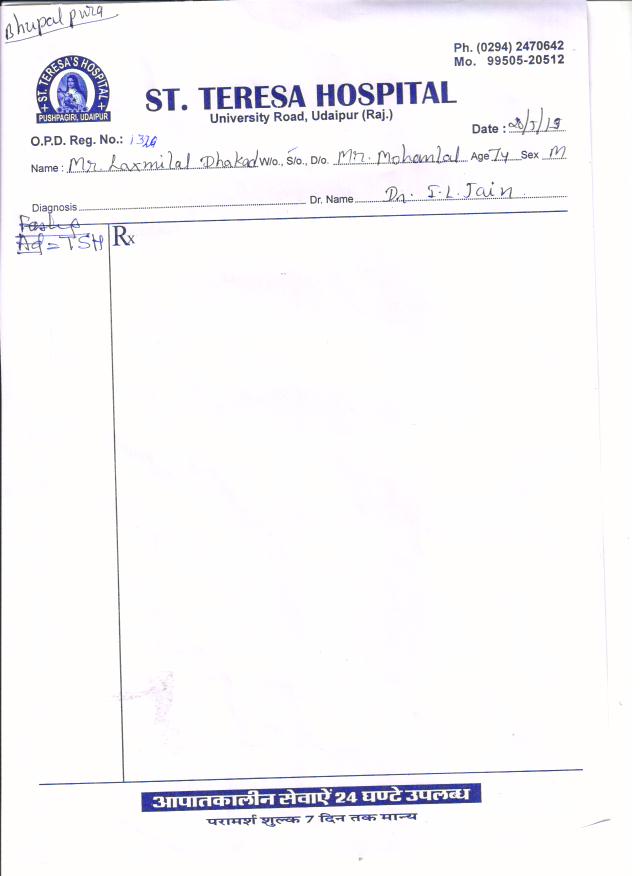 Bhupalpura
Ph. (0294) 2470642
Mo. 99505-20512
ST. TERESA'S HOSPITAL
PUSHPAGIRI, UDAIPUR
ST. TERESA HOSPITAL
University Road, Udaipur (Raj.)
Date : 28/5/19
O.P.D. Reg. No.:
Name : Mr. Laxmilal Dhakad W/o., S/o., D/o. Mr. Mohanlal Age 74 Sex M
Diagnosis Dr. Name Dr. I.L. Jain
Ad = TSH
Rx
आपातकालीन सेवाऐं 24 घण्टे उपलब्ध
परामर्श शुल्क 7 दिन तक मान्य